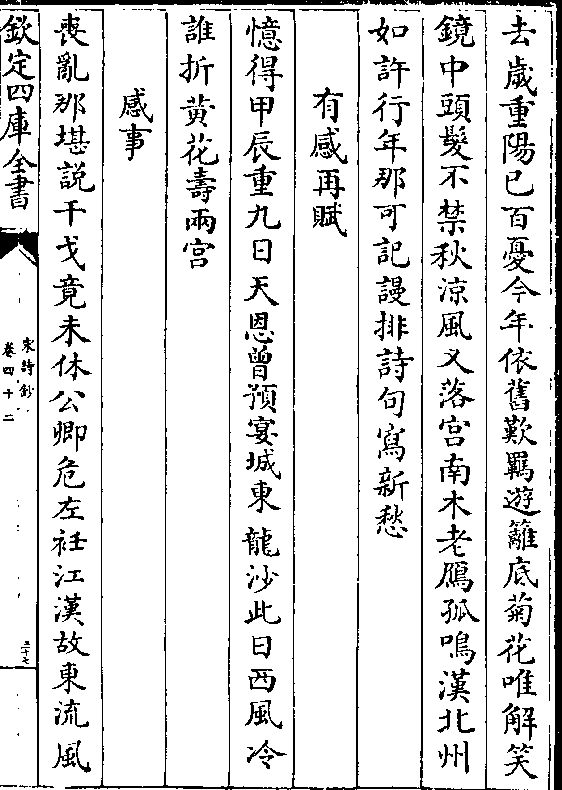 去歲重陽已百憂今年依舊歎羈遊籬底菊花唯解笑
鏡中頭髮不禁秋涼風又落宮南木老鴈孤鳴漢北州
如許行年那可記謾排詩句寫新愁
有感再賦
憶得甲辰重九日天恩曾預宴城東龍沙此日西風冷
誰折黄花壽兩宮
感事
喪亂那堪説干戈竟未休公卿危左衽江漢故東流風
欽定四庫全書
宋詩鈔
卷四十二
三十七